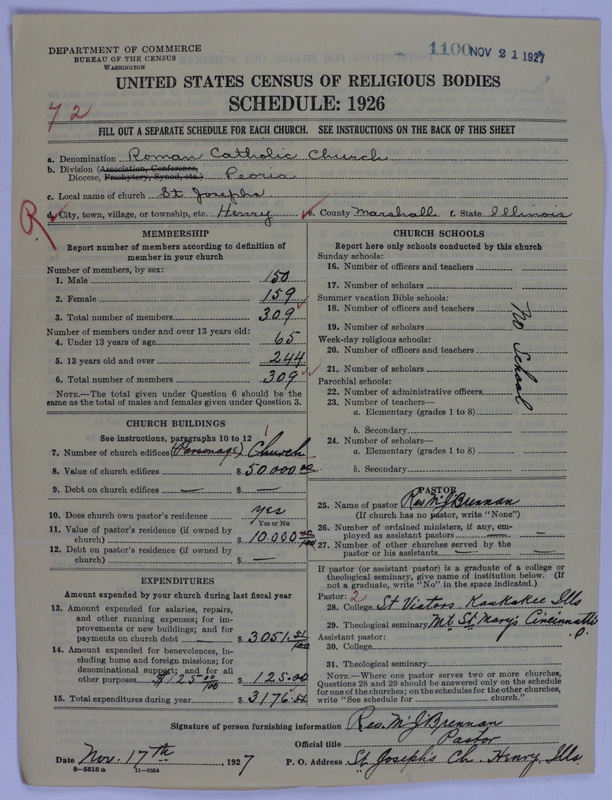 DEPARTMENT OF COMMERCE
BUREAU OF THE CENSUS
WASHINGTON
1100 NOV 21 1927
UNITED STATES CENSUS OF RELIGIOUS BODIES
SCHEDULE: 1926
72
FILL OUT A SEPARATE SCHEDULE FOR EACH CHURCH. SEE INSTRUCTIONS ON THE BACK OF THIS SHEET
a. Denomination Roman Catholic Church
b. Division (Association, Conference,
Diocese, Presbytery, Synod, etc.) Peoria
c. Local name of church St Josephs
R
d. City, town, village, or township, etc. Henry e. County Marshall f. State Illinois
MEMBERSHIP
Report number of members according to definition of
member in your church
Number of members, by sex:
1. Male 150
2. Female 159
3. Total number of members 309
Number of members under and over 13 years old:
4. Under 13 years of age 65
5. 13 years old and over 244
6. Total number of members 309
NOTE.—The total given under Question 6 should be
same as the total of males and females given under Question 3.
CHURCH BUILDINGS
See instructions, paragraphs 10 to 12
7. Number of church edifices (Parsonage) Church 1
8. Value of church edifices $ 50.000 00
9. Debt on church edifices — $ —
10. Does church own pastor's residence yes
Yes or No
11. Value of pastor's residence (if owned by
church) $ 10.000 00/100
12. Debt on pastor's residence (if owned by
church) $ —
EXPENDITURES
Amount expended by your church during last fiscal year
13. Amount expended for salaries, repairs,
and other running expenses; for im-
provements or new buildings; and for
payments on church debt — $ 3051.51/100
14. Amount expended for benevolences, in-
cluding home and foreign missions; for
denominational support; and for all
other purposes $125 00/100 $ 125.00
15. Total expenditures during year $ 3176.51
CHURCH SCHOOLS
Report here only schools conducted by this church
Sunday schools:
16. Number of officers and teachers
17. Number of scholars
Summer vacation Bible schools:
18. Number of officers and teachers
19. Number of scholars
Week-day religious schools:
20. Number of officers and teachers
21. Number of scholars
Parochial schools:
22. Number of administrative officers
23. Number of teachers—
a. Elementary (grades 1 to 8)
b. Secondary
24. Number of scholars—
a. Elementary (grades 1 to 8)
b. Secondary
No School
PASTOR
25. Name of pastor Rev M J Brennan
(If church has no pastor, write "None")
26. Number of ordained ministers, if any, em-
ployed as assistant pastors — —
27. Number of other churches served by the
pastor or his assistants — —
If pastor (or assistant pastor) is a graduate of a college or
theological seminary, give name of institution below. (If
not a graduate, write "No" in the space indicated.)
Pastor: 2
28. College St Viators Kankakee Ills
29. Theological seminary Mt St Mary's Cincinnatti
O.
Assistant pastor:
30. College
31. Theological seminary
NOTE.—Where one pastor serves two or more churches,
Questions 28 and 29 should be answered only on the schedule
for one of the churches; on the schedules for the other churches,
write "See schedule for ____ church."
Signature of person furnishing information Rev. M J Brennan
Official title Pastor
Date Nov. 17th, 1927 P. O. Address St Joseph's Ch. Henry Ills.
6—5516 a 11—9054